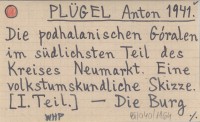 PLÜGEL Anton 1941.
Die podhalanischen Góralen
im südlichsten Teil des
Kreises Neumarkt. Eine
volkstumskundliche Skizze.
[I. Teil.] — Die Burg
WHP